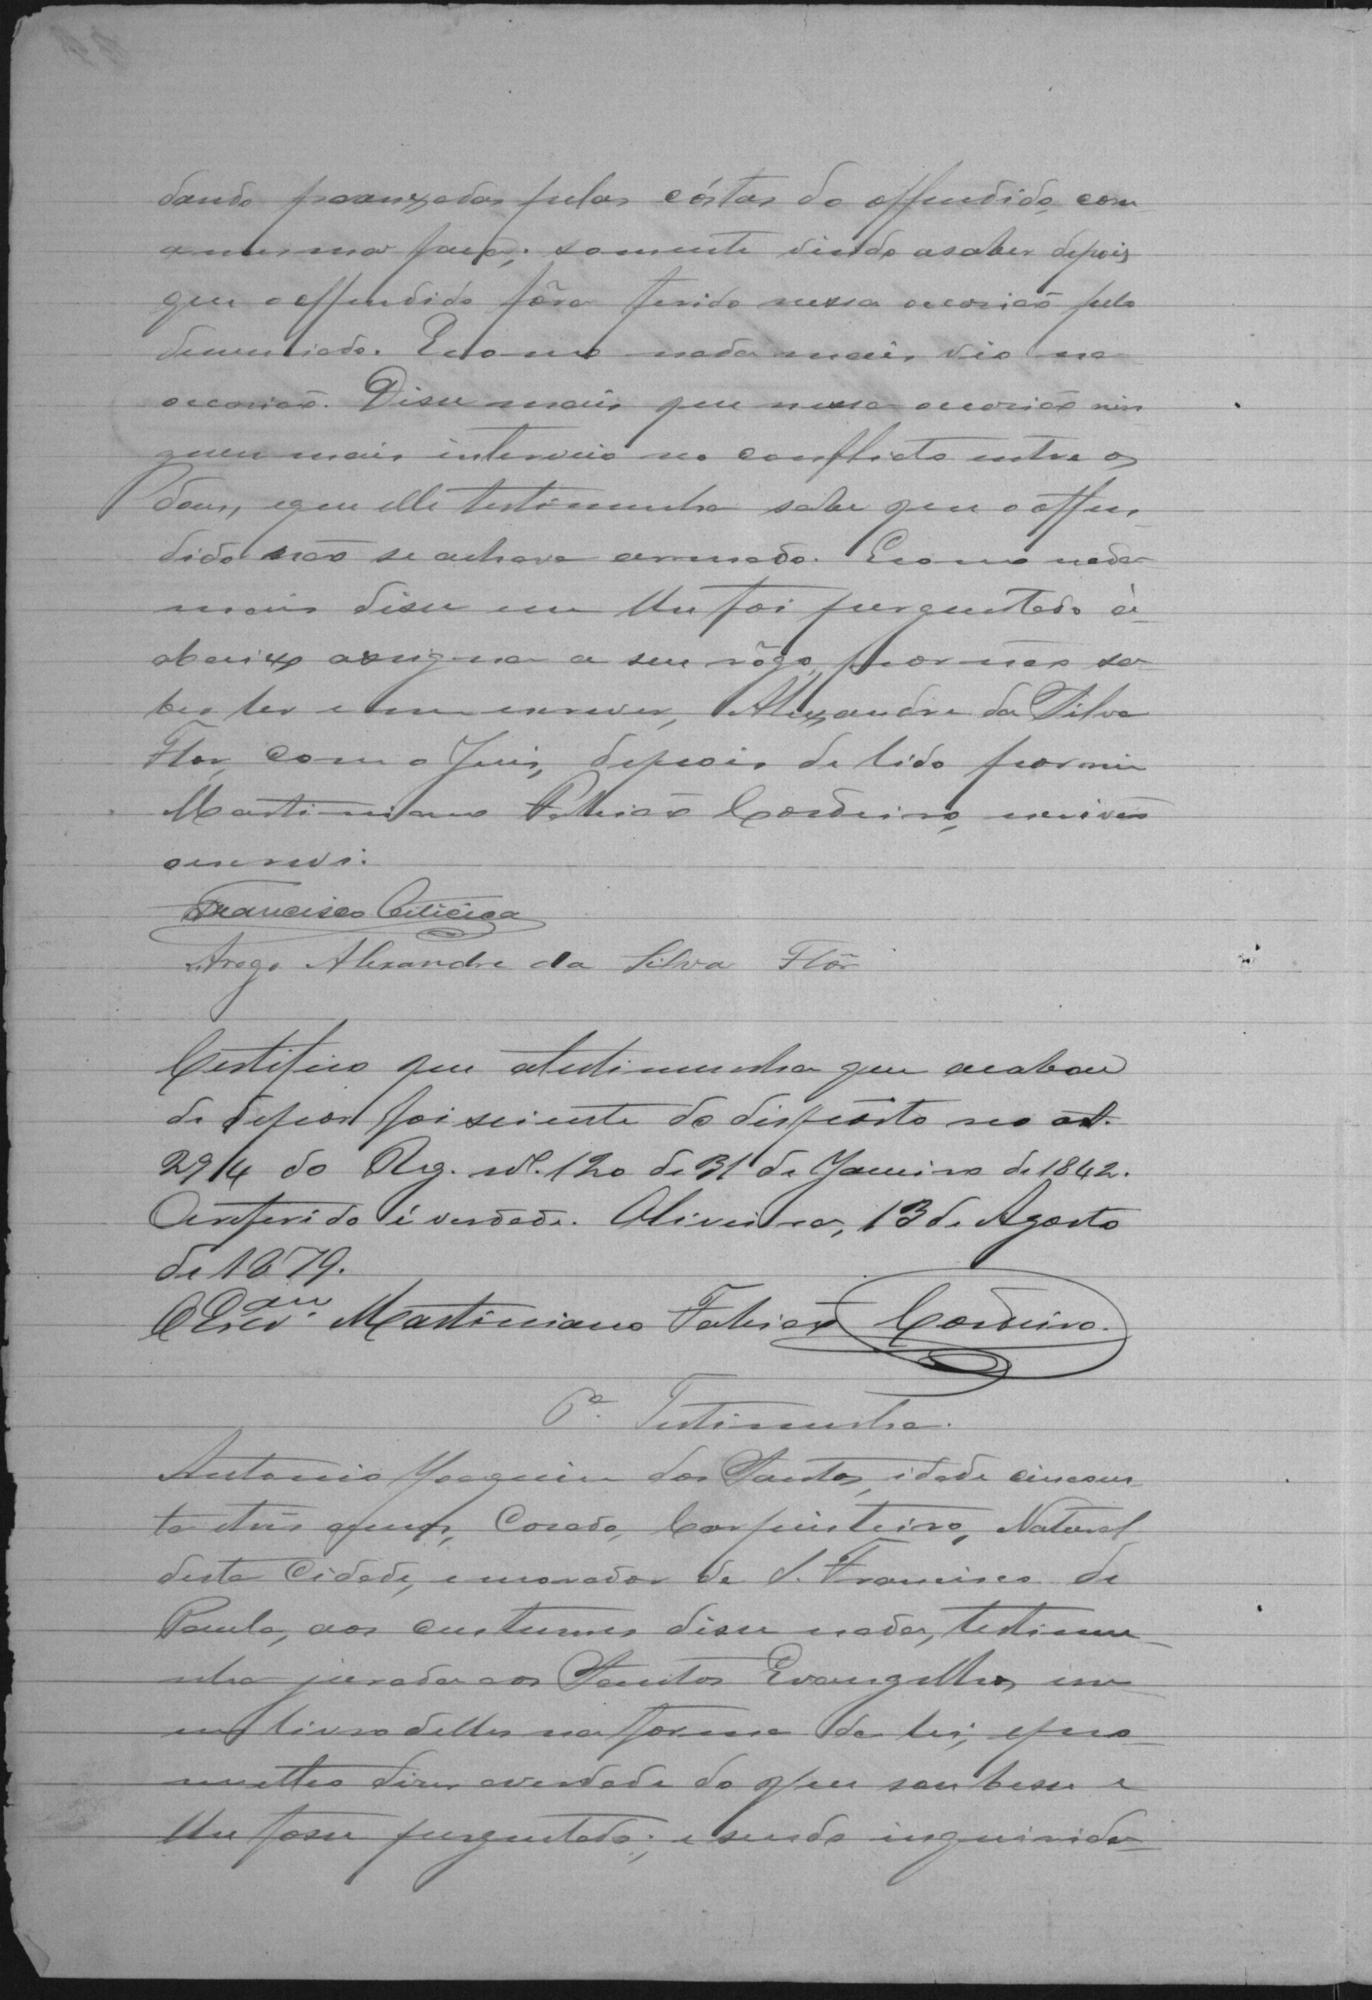 dando pranxadas pelas cóstas do offendido com
a mesma faca; somente vindo a saber depois
que o offendido fôra ferido nessa occasião pelo
denunciado. E como nada mais vio na
occasião. Disse mais que nessa occasião nin
guem mais interveio no conflicto entre os
dous, e que elle testimunha sabe que o offen
dido não se achava armado. E como nada
mais disse nem lhe foi perguntado
abaixo assigna a seu rôgo, por não sa
ber ler e nem escrever, Alexandre da Silva
Flor, com o Juis, depois de lido por mim
Martiniano Fabricio Cordeiro, escrivão
o escrevi.
Francisco
Arogo Alexandre da Silva Flôr
Certifico que a testimunha que acabou
de depor foi sciente do disposto no art.
294 do Reg. nº. 120 de 31 de Janeiro de 1842.
O referido é verdade. Oliveira, 13 de Agosto
de 1879.
O Escram. Martiniano Fabricio Cordeiro.
6ª. Testimunha.
Antonio Joaquim dos Santos, idade cincoen
ta e tres annos, Casado, Carpinteiro, Natural
desta Cidade, e morador de S. Francisco de
Paula, aos custumes disse nada, testimu
nha jurada aos Santos Evangelhos em
um livro delles na forma da lei, e pro
metteo diser a verdade do que soubesse e
lhe fosse perguntado; e sendo inquirida